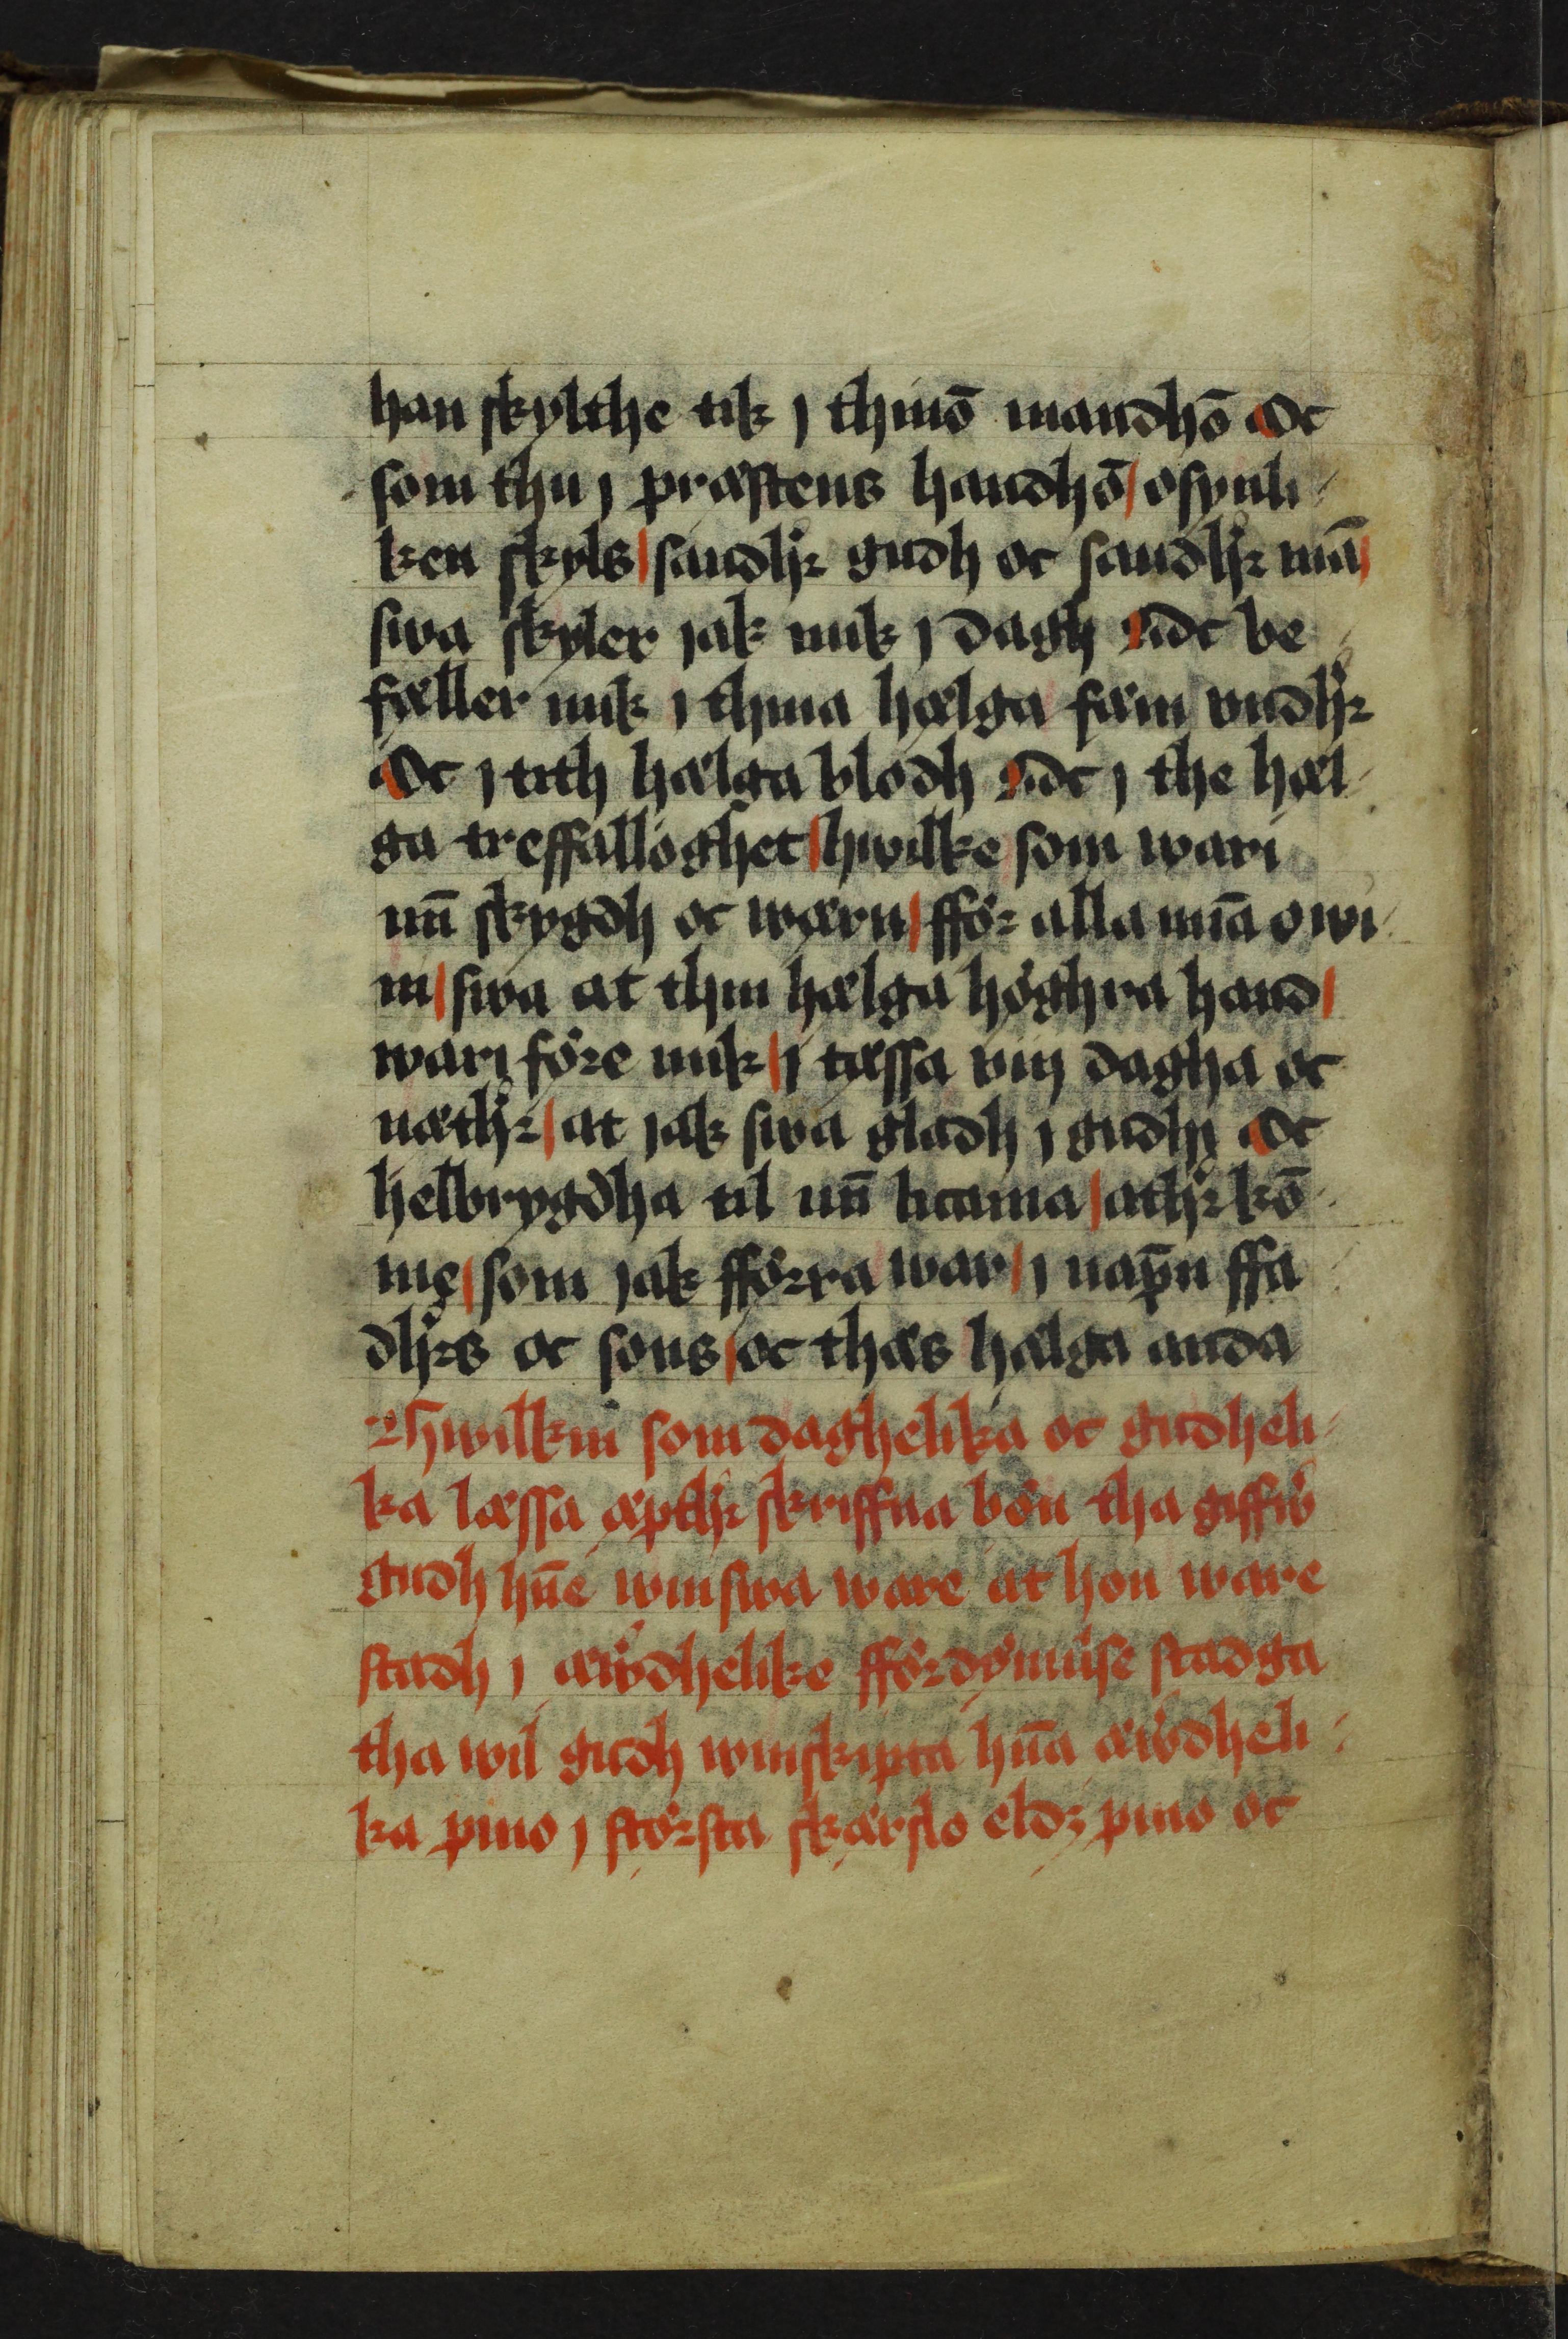 han skylthe tik j thinō mandhō Oc
som thu j præstens handhō / osynli
ken skyls / sandhꝛ gudh oc sandhꝛ mā /
swa skyler jak mik j dagh Oc be
fæller mik j thina hælga fäm vndhꝛ
Oc j tith hælga blodh Oc j the hæl
ga treffalloghet / hwilke som wari
mī skygdh oc wærn / ffőꝛ alla mīa owi
ni / swa at thin hælga hőghra hand /
wari főꝛe mik / j tæssa viij dagha oc
næthꝛ / at jak swa gladh j gudhj Oc
helbrygdha til mī licama / athꝛ kō
me / som jak ffőꝛra war / j nāpn ffa
dhꝛs oc sons / oc thæs hælga anda
Hwilkin som daghelika oc gudheli
ka læssa æpthꝛ skriffna bőn tha giffw̓
gudh hn̄e win swa ware at hon ware
stadh j æw̓dhelike ffőꝛdőmilse stadga
tha wil gudh winskipta hn̄a æw̓dheli
ka pino j stőꝛsta skærslo eldz pino oc